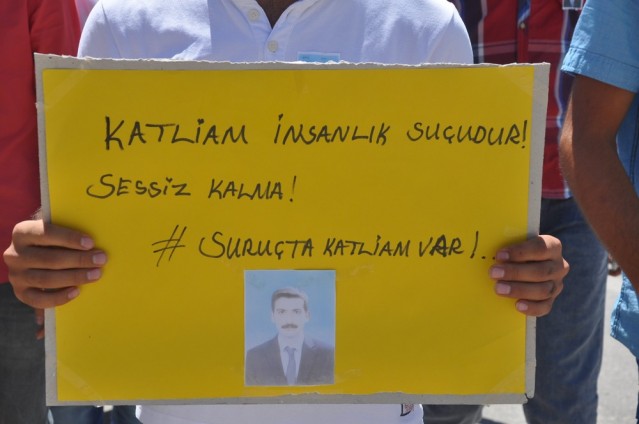 KATLİAM İNSANLIK SUÇUDUR!
SESSİZ KALMA!
# SURUÇTA KATLİAM VAR!..